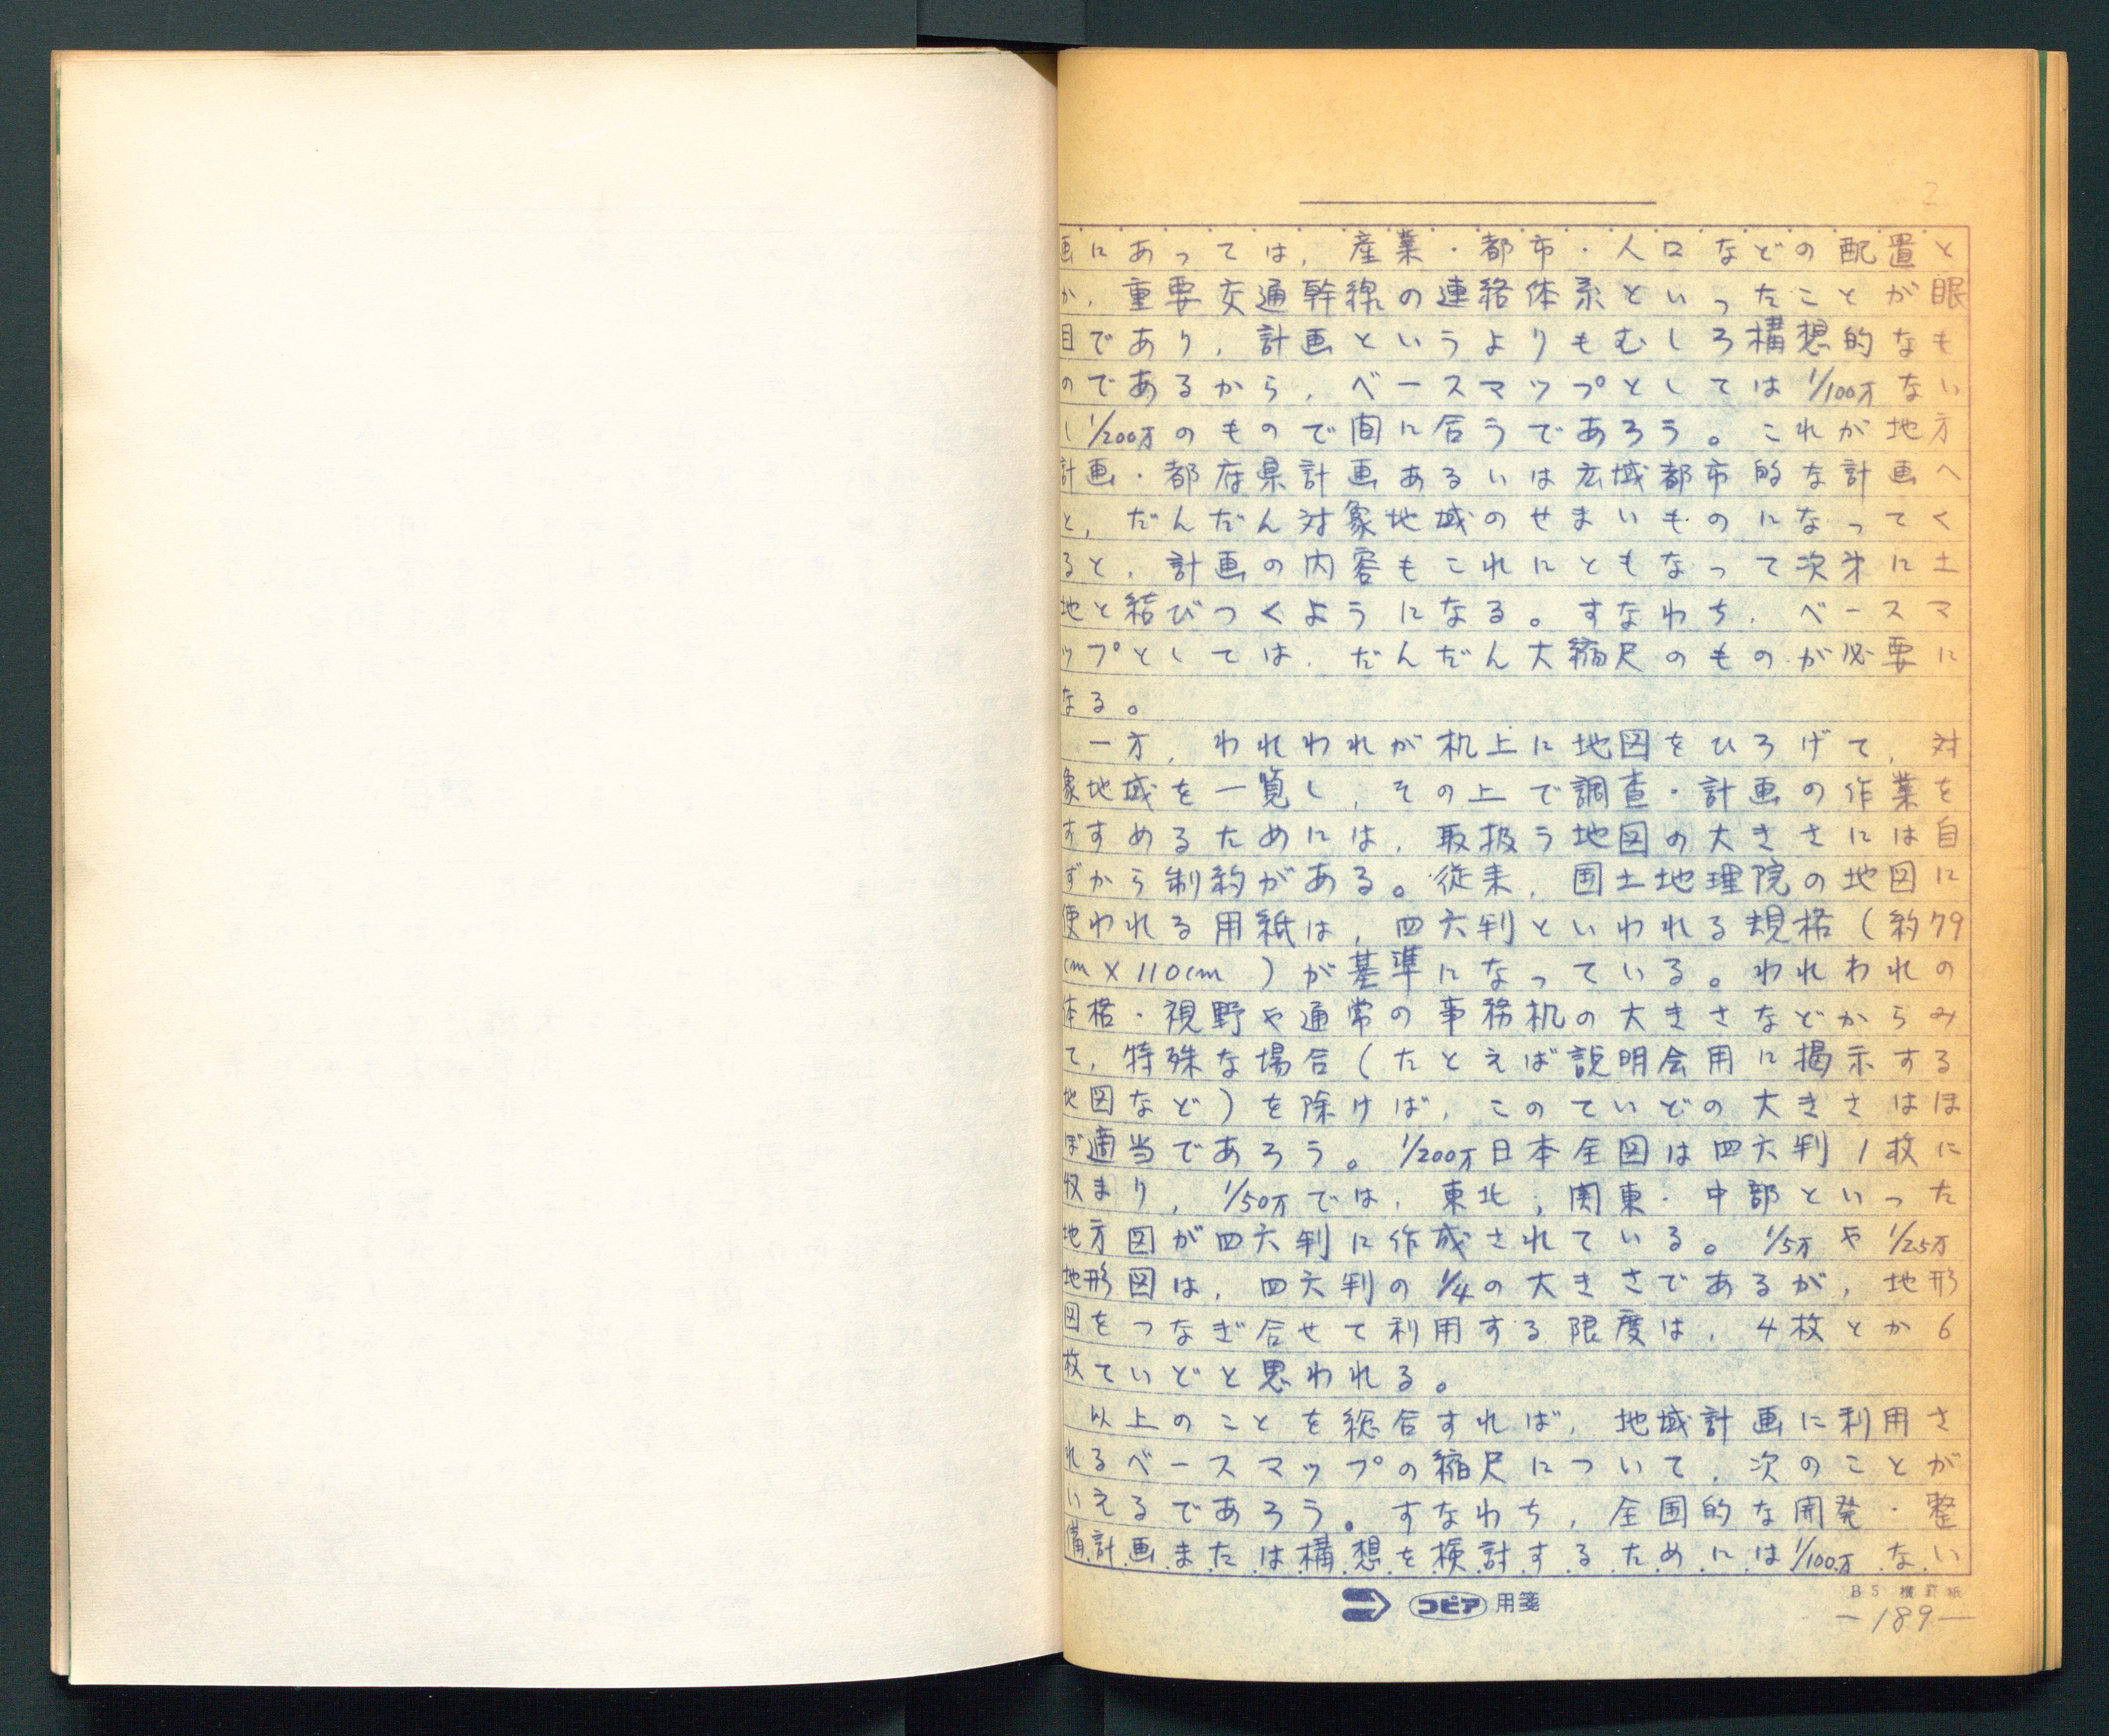 2
画にあっては，産業・都市・人口などの配置と
か，重要交通幹線の連絡体系といったことが眼
目であり，計画というよりもむしろ構想的なも
のであるから，ベースマップとしては1/100万ない
し1/200万のもので間に合うであろう。これが地方
計画・都府県計画あるいは広域都市的な計画へ
と，だんだん対象地域のせまいものになってく
ると，計画の内容もこれにともなって次第に土
地と結びつくようになる。すなわち，ベースマ
ップとしては，だんだん大縮尺のものが必要に
なる。
一方，われわれが机上に地図をひろげて，対
象地域を一覧し，その上で調査・計画の作業を
すすめるためには，取扱う地図の大きさには自
ずから制約がある。従来，国土地理院の地図に
使われる用紙は，四六判といわれる規格（約79
cm×110cm）が基準になっている。われわれの
体格・視野や通常の事務机の大きさなどからみ
て，特殊な場合（たとえば説明会用に掲示する
地図など）を除けば，このていどの大きさはほ
ぼ適当であろう。1/200万日本全図は四六判1枚に
収まり，1/50万では，東北，関東・中部といった
地方図が四六判に作成されている。1/5万や1/2.5万
地形図は，四六判の1/4の大きさであるが，地形
図をつなぎ合せて利用する限度は，4枚とか6
枚ていどと思われる。
以上のことを総合すれば，地域計画に利用さ
れるベースマップの縮尺について，次のことが
いえるであろう。すなわち，全国的な開発・整
備計画または構想を検討するためには1/100万ない
コピア用箋
B5 横罫紙
—189—